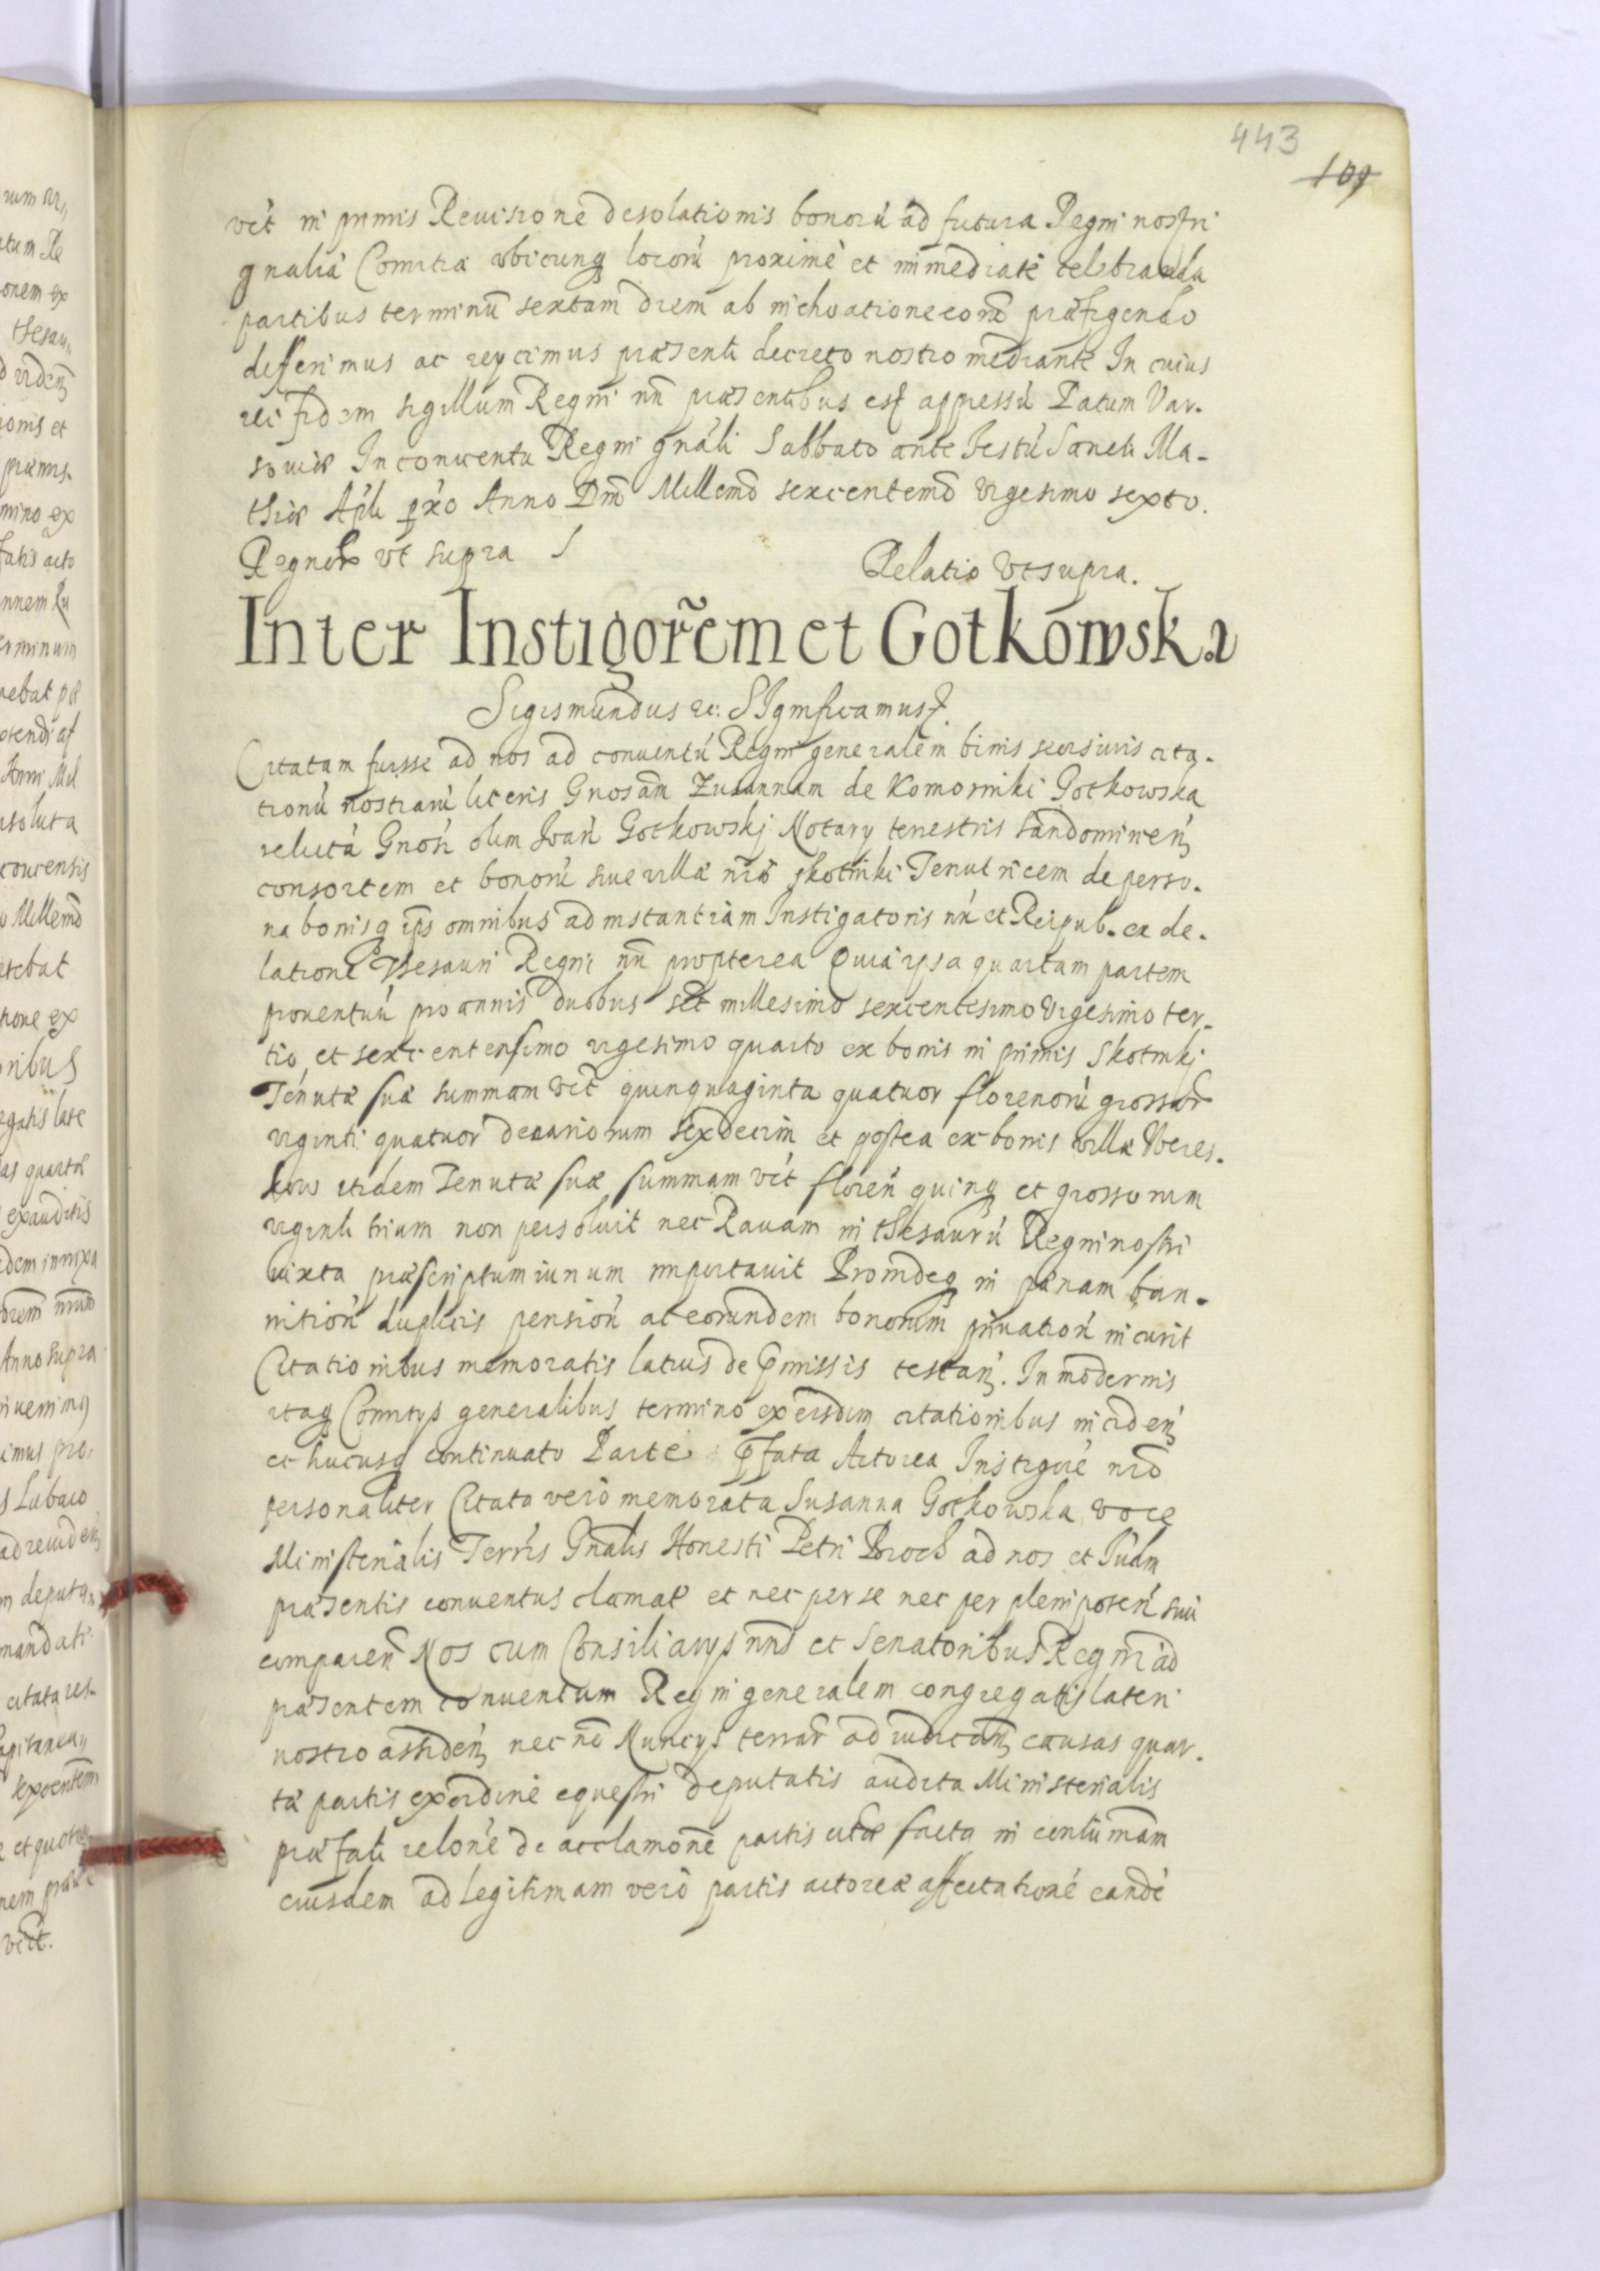 443
109
vēt in primis Reuisione desolationis bonorū ad futura Regni nostri
gnalia Comitia vbicunq locorū proximè et immediatè celebranda
partibus terminū sextam diem ab inchoatione eorū præfigendo
differimus ac reycimus præsenti decreto nostro mediante In cuius
rei fidem sigillum Regni nrī præsentibus est appressū Datum Var-
souiæ In conuentu Regni gnāli Sabbato ante Festū Sancti Ma-
thiæ Apli pxo Anno Dnī Millemo sexcentemo vigesimo sexto.
Regnorū vt supra Relatio vt supra.
Inter Instigorēm et Gotkowska
Sigismundus etc: Significamus
Citatam fuisse ad nos ad conuentū Regni generalem binis seorsiuis cita-
tionū nostrarū literis Gnosām Zusannam de Komorniki Gotkowska
relictā Gnosi olim Joān Gotkowskj Notary terrestris Sandomirień
consortem et bonorū siue villæ nrāe Skotniki Tenutricem de perso-
na bonisq ipš omnibus ad instantiam Instigatoris nrī et Reipub. ex de-
latione Thesauri Regni nrī propterea Quia ipsa quartam partem
prouentuū pro annis duobus sēt millesimo sexcentesimo vigesimo ter-
tio, et sexcentensimo vigesimo quarto ex bonis in primis Skotnikj
Tenutæ suæ summam vēt quinquaginta quatuor florenorū grossor
viginti quatuor denariorum sexdecim et postea ex bonis villæ Weres-
kow itidem Tenutæ suæ summam vēt floreń quinq et grossorum
viginti trium non persoluit nec Rauam in thesaurū Regni nostri
iuxta præscriptum iurium importauit Proindeq in pænam ban-
nitioń duplicis pensioń ac eorundem bonorum priuatioń incurit
Citationibus memoratis latius de præmissis testań. In modernis
itaq Comitys generalibus termino ex eisdem citationibus incideń
et hucusq continuato Parte præfata Actorea Instigore nrō
personaliter Citata verò memorata Susanna Gotkowska voce
Ministerialis Terrīs Gnalis Honesti Petri Broch ad nos et Iudm
præsentis conuentus clamatæ et nec per se nec per plenipoteń suū
compareń Nos cum Consiliarys nrīs et Senatoribus Regni ad
præsentem conuentum Regni generalem congregatis lateri
nostro assideń nec nō Muncys terrar ad iudicań causas quar-
tæ partis ex ordine equestri deputatis audita Ministerialis
præfati relone de acclamone partis citæ facta in contumam
eiusdem ad legitimam verò partis actoreæ affectationē eandē